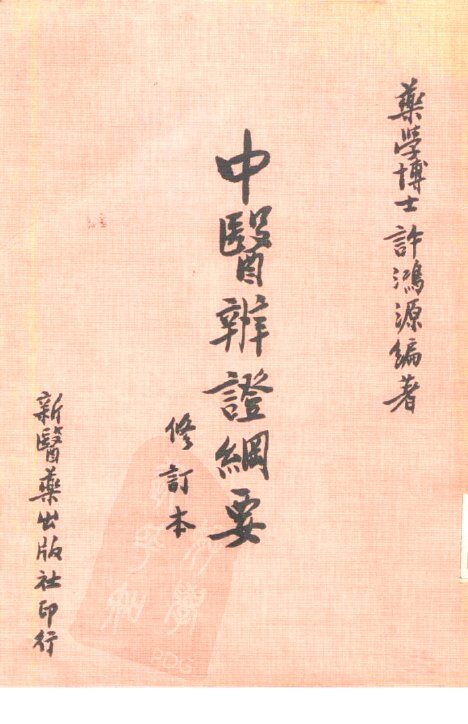 藥學博士許鴻源編著
中醫辨證綱要
修訂本
新醫藥出版社印行
PDG